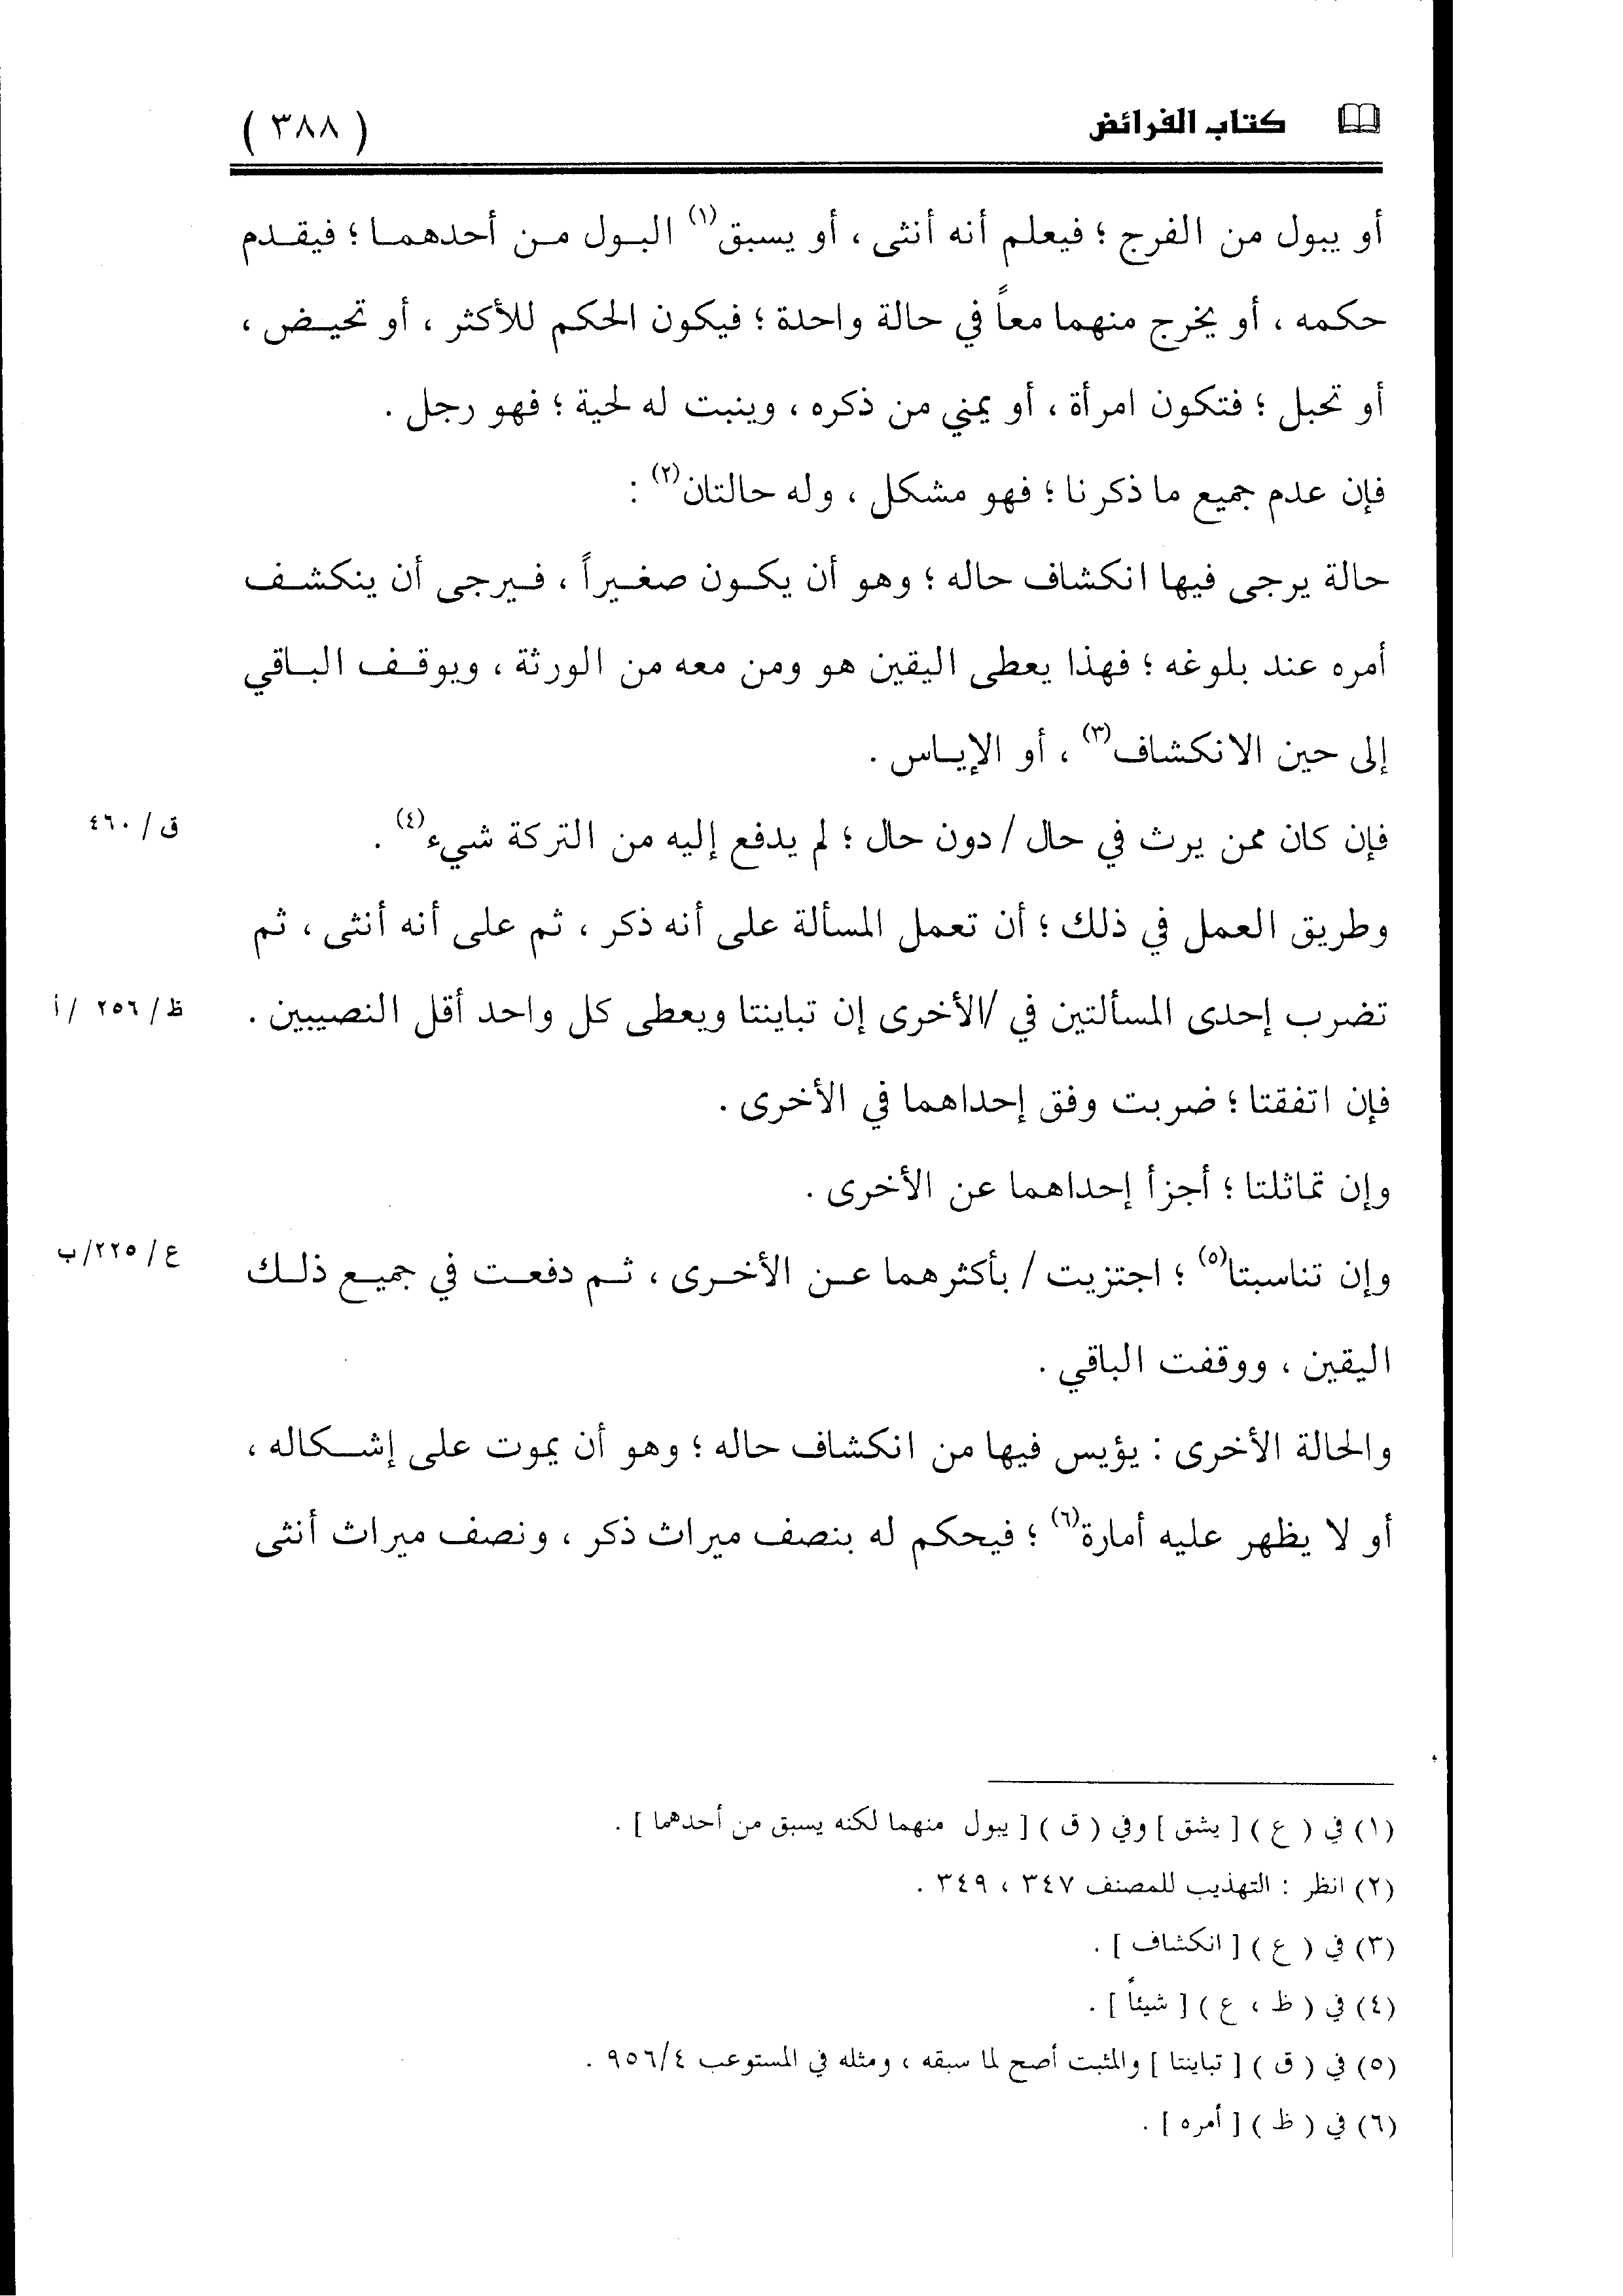 كتاب الفرائض
( ٣٨٨ )
أو يبول من الفرج ؛ فيعلم أنه أنثى ، أو يسبق(١) البول من أحدهما ؛ فيقدم
حكمه ، أو يخرج منهما معاً في حالة واحدة ؛ فيكون الحكم للأكثر ، أو تحيض ،
أو تحبل ؛ فتكون امرأة ، أو يمني من ذكره ، وينبت له لحية ؛ فهو رجل .
فإن عدم جميع ما ذكرنا ؛ فهو مشكل ، وله حالتان(٢) :
حالة يرجى فيها انكشاف حاله ؛ وهو أن يكون صغيراً ، فيرجى أن ينكشف
أمره عند بلوغه ؛ فهذا يعطى اليقين هو ومن معه من الورثة ، ويوقف الباقي
إلى حين الانكشاف(٣) ، أو الإياس .
فإن كان ممن يرث في حال / دون حال ؛ لم يدفع إليه من التركة شيء(٤) .
ق / ٤٦٠
وطريق العمل في ذلك ؛ أن تعمل المسألة على أنه ذكر ، ثم على أنه أنثى ، ثم
تضرب إحدى المسألتين في /الأخرى إن تباينتا ويعطى كل واحد أقل النصيبين .
ظ / ٢٥٦ / أ
فإن اتفقتا ؛ ضربت وفق إحداهما في الأخرى .
وإن تماثلتا ؛ أجزأ إحداهما عن الأخرى .
وإن تناسبتا(٥) ؛ اجتزيت / بأكثرهما عن الأخرى ، ثم دفعت في جميع ذلك
ع / ٢٢٥/ب
اليقين ، ووقفت الباقي .
والحالة الأخرى : يؤيس فيها من انكشاف حاله ؛ وهو أن يموت على إشكاله ،
أو لا يظهر عليه أمارة(٦) ؛ فيحكم له بنصف ميراث ذكر ، ونصف ميراث أنثى
(١) في ( ع ) [ يشق ] وفي ( ق ) [ يبول منهما لكنه يسبق من أحدهما ] .
(٢) انظر : التهذيب للمصنف ٣٤٧ ، ٣٤٩ .
(٣) في ( ع ) [ انكشاف ] .
(٤) في ( ظ ، ع ) [ شيئاً ] .
(٥) في ( ق ) [ تباينتا ] والمثبت أصح لما سبقه ، ومثله في المستوعب ٩٥٦/٤ .
(٦) في ( ظ ) [ أمره ] .